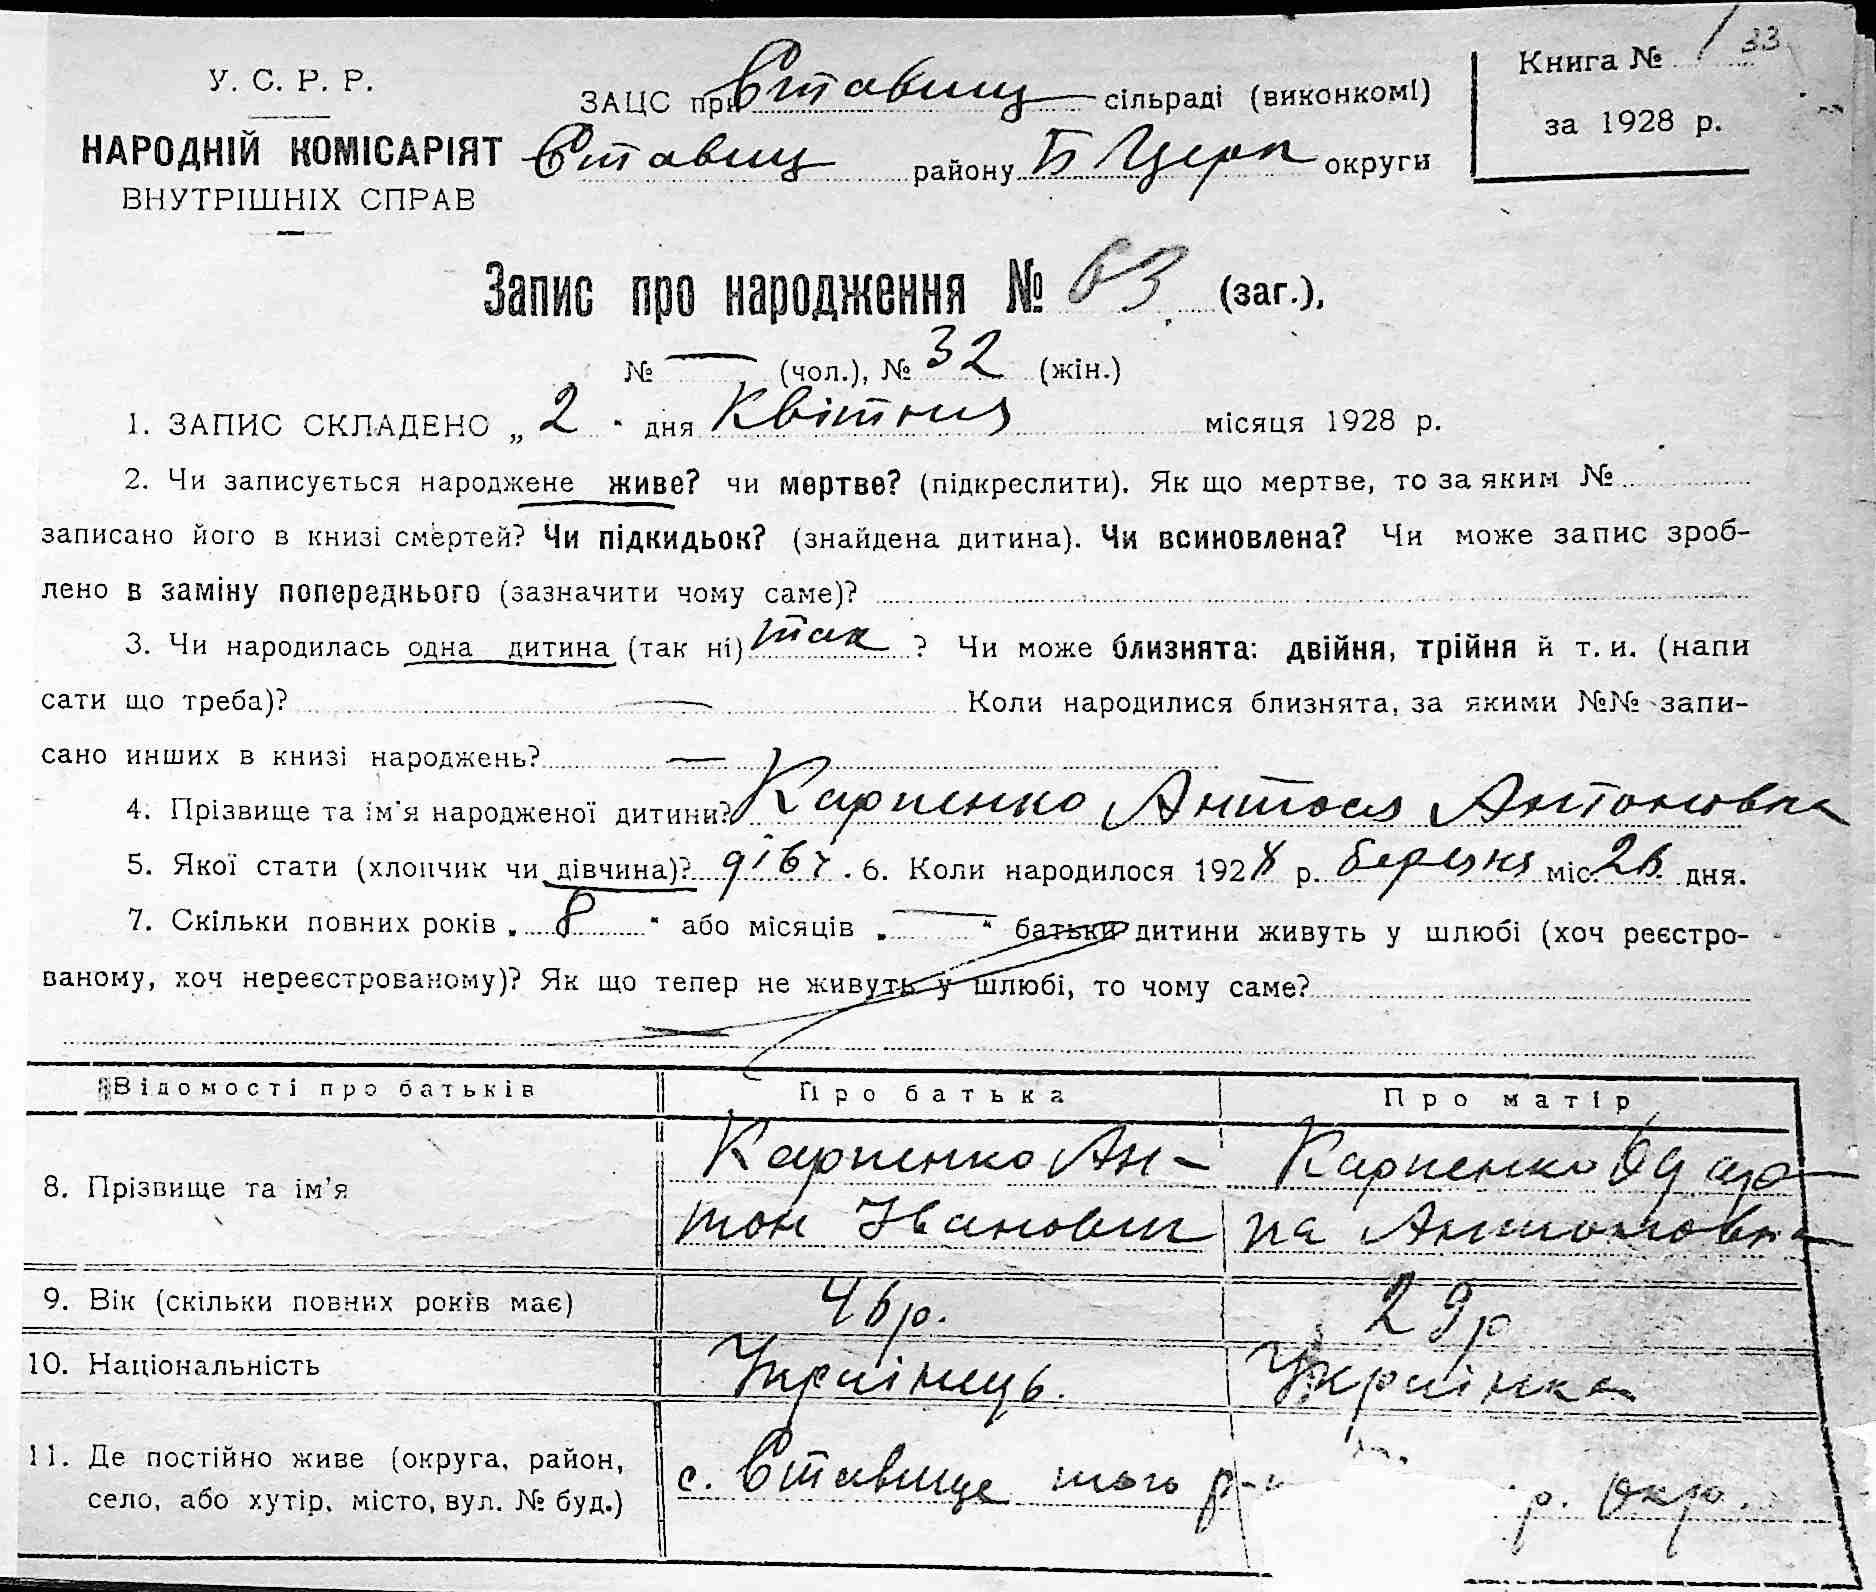 У. С. Р. Р.
НАРОДНІЙ КОМІСАРІЯТ
ВНУТРІШНІХ СПРАВ
ЗАЦС при Ставищ сільраді (виконкомі)
Ставищ району Б Церк округи
Книга № 1 33
за 1928 р.
Запис про народження № 63 (заг.),
№ — (чол.), № 32 (жін.)
1. ЗАПИС СКЛАДЕНО „ 2 " дня Квітня місяця 1928 р.
2. Чи записується народжене живе? чи мертве? (підкреслити). Як що мертве, то за яким №
записано його в книзі смертей? Чи підкидьок? (знайдена дитина). Чи всиновлена? Чи може запис зроб-
лено в заміну попереднього (зазначити чому саме)?
3. Чи народилась одна дитина (так ні) так ? Чи може близнята: двійня, трійня й т. и. (напи
сати що треба)? — Коли народилися близнята, за якими №№ запи-
сано инших в книзі народжень? —
4. Прізвище та ім'я народженої дитини? Карпенко Антося Антоновна
5. Якої стати (хлопчик чи дівчина)? дівч. 6. Коли народилося 1928 р. березня міс. 26 дня.
7. Скільки повних років „ 8 " або місяців „ — " батьки дитини живуть у шлюбі (хоч реєстро-
ваному, хоч нереєстрованому)? Як що тепер не живуть у шлюбі, то чому саме?
Відомості про батьків Про батька Про матір
8. Прізвище та ім'я Карпенко Ан- Карпенко
тон Іванович на Антоновна
9. Вік (скільки повних років має) 46 р. 29 р
10. Національність Українець. Українка
11. Де постійно живе (округа, район,
село, або хутір, місто, вул. № буд.) с. Ставище того р-н р. окр.